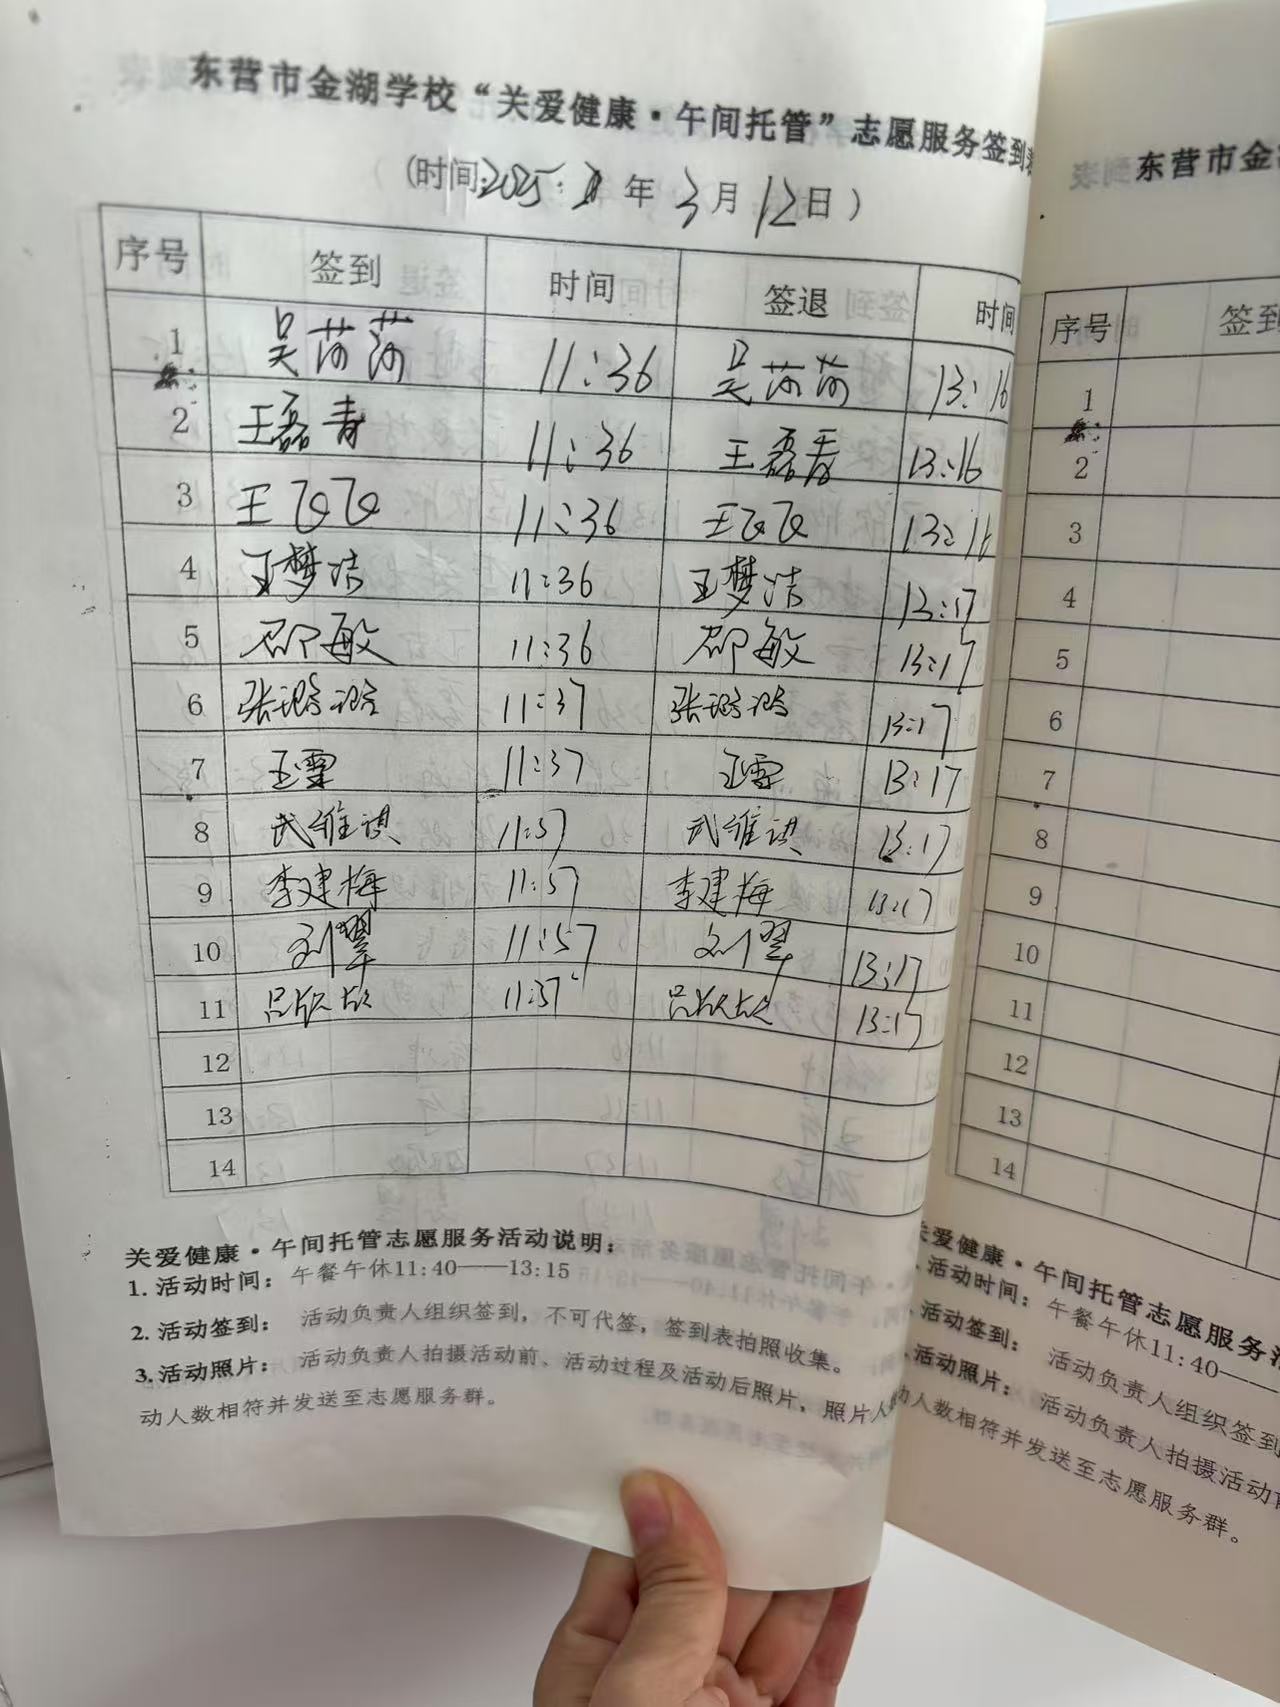 东营市金湖学校“关爱健康·午间托管”志愿服务签到表
（时间:2025年3月12日）
序号 签到 时间 签退 时间
1 吴莎莎 11:36 吴莎莎 13:16
2 王磊青 11:36 王磊青 13:16
3 王飞飞 11:36 王飞飞 13:16
4 王梦洁 11:36 王梦洁 13:17
5 邵敏 11:36 邵敏 13:17
6 张 11:37 张 13:17
7 王雪 11:37 王雪 13:17
8 武维 11:37 武维 13:17
9 李建梅 11:37 李建梅 13:17
10 刘翠 11:37 刘翠 13:17
11 吕欣欣 11:37 吕欣欣 13:17
12
13
14
关爱健康·午间托管志愿服务活动说明：
1.活动时间： 午餐午休11:40——13:15
2.活动签到： 活动负责人组织签到，不可代签，签到表拍照收集。
3.活动照片： 活动负责人拍摄活动前、活动过程及活动后照片，照片人
动人数相符并发送至志愿服务群。
东营市金
序号 签到
1
2
3
4
5
6
7
8
9
10
11
12
13
14
关爱健康·午间托管志愿服务
活动时间： 午餐午休11:40——
活动签到： 活动负责人组织签到
活动照片： 活动负责人拍摄活动前
动人数相符并发送至志愿服务群。